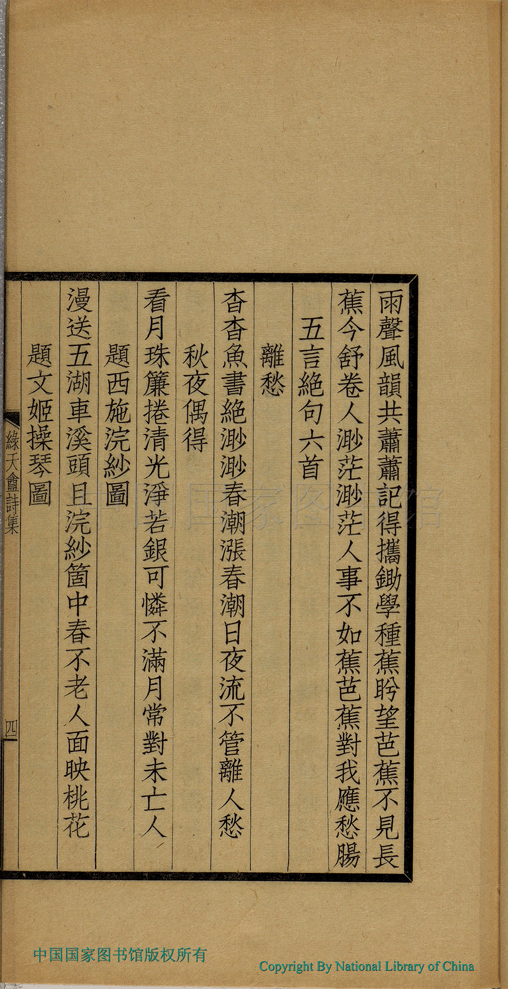 雨聲風韻共蕭蕭記得攜鋤學種蕉盻望芭蕉不見長
蕉今舒卷人渺茫渺茫人事不如蕉芭蕉對我應愁腸
五言絕句六首
離愁
杳杳魚書絕渺渺春潮漲春潮日夜流不管離人愁
秋夜偶得
看月珠簾捲清光淨若銀可憐不滿月常對未亡人
題西施浣紗圖
漫送五湖車溪頭且浣紗箇中春不老人面映桃花
題文姬操琴圖
綠天盦詩集
四
中国国家图书馆版权所有
Copyright By National Library of China